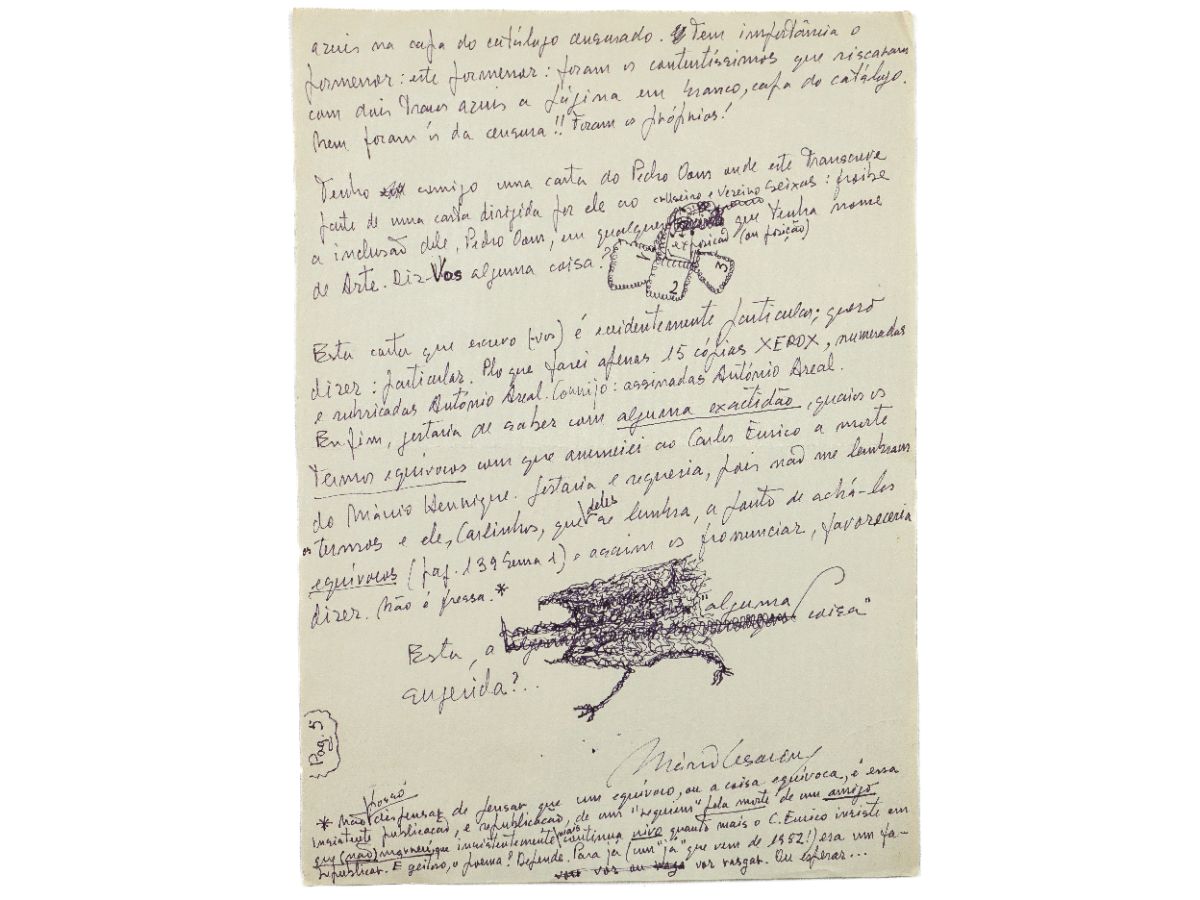 azuis na capa do catálogo censurado. Tem importância o
pormenor: este pormenor: foram os contentíssimos que riscaram
com dois traços azuis a página em branco, capa do catálogo.
Nem foram os da censura!! Foram os próprios!
Tenho comigo uma carta do Pedro Oom onde este transcreve
parte de uma carta dirigida por ele ao Cruzeiro Seixas: proíbe
a inclusão dele, Pedro Oom, em qualquer exposição (ou posição) que tenha nome
de Arte. Diz-Vos alguma coisa?
1 2 3
Esta carta que escrevo (-vos) é evidentemente particular; quero
dizer: particular. Plo que farei apenas 15 cópias XEROX, numeradas
e rubricadas António Areal. Corrijo: assinadas António Areal.
Enfim, gostaria de saber com alguma exactidão, quais os
termos equívocos com que anunciei ao Carlos Eurico a morte
do Mário Henrique. Gostaria e requeria, pois não me lembram
os termos e ele, Carlinhos, que deles se lembra, a ponto de achá-los
equívocos (pag. 139 Sema 1) e assim os pronunciar, favoreceria
dizer. Não é pressa.*
Esta, a "alguma coisa"
sugerida?..
Mário Cesariny
Pag. 5
* Não posso dispensar de pensar que um equívoco, ou a coisa equívoca, é essa
insistente publicação, e republicação, de um "requiem" pela morte de um amigo
que (não) morreu, que insistentemente mais continua vivo quanto mais o C. Eurico insiste em
republicar. É geitoso, o poema? Depende. Para já (um "já" que vem de 1952!) era um fa-
vor vos rasgar. Ou esperar...